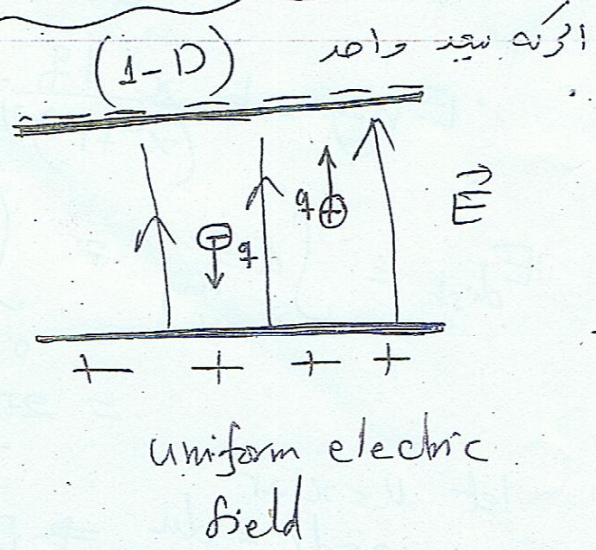 الحركة ببعد واحد
(1-D)
— — — — — — —
E
q +
- q
+ + + +
uniform electric
field